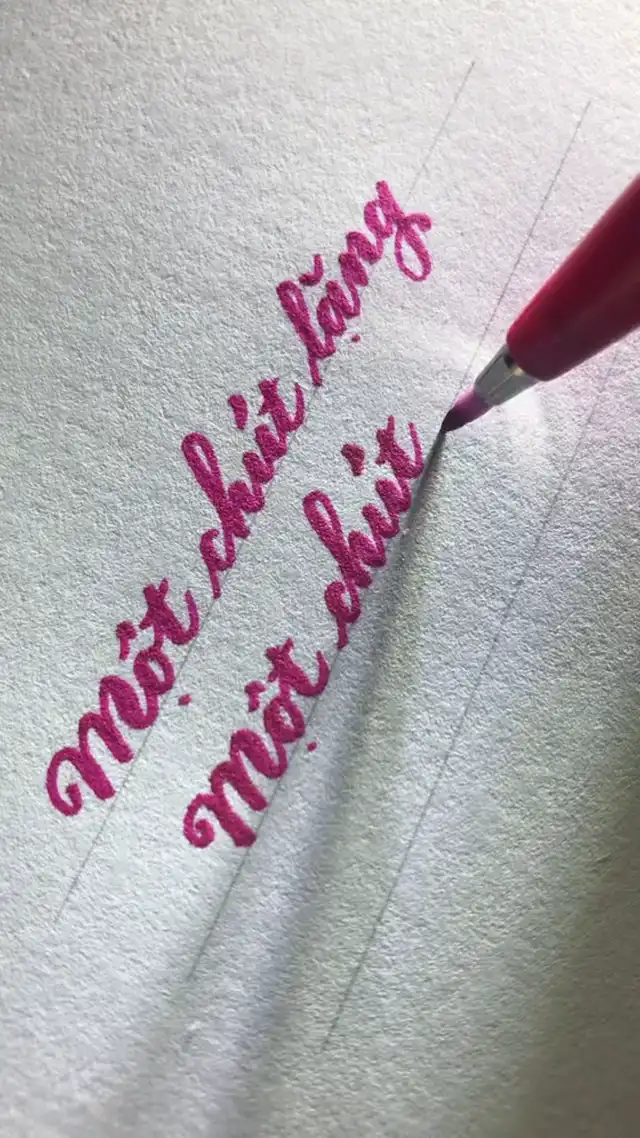 Một chút lặng
Một chút